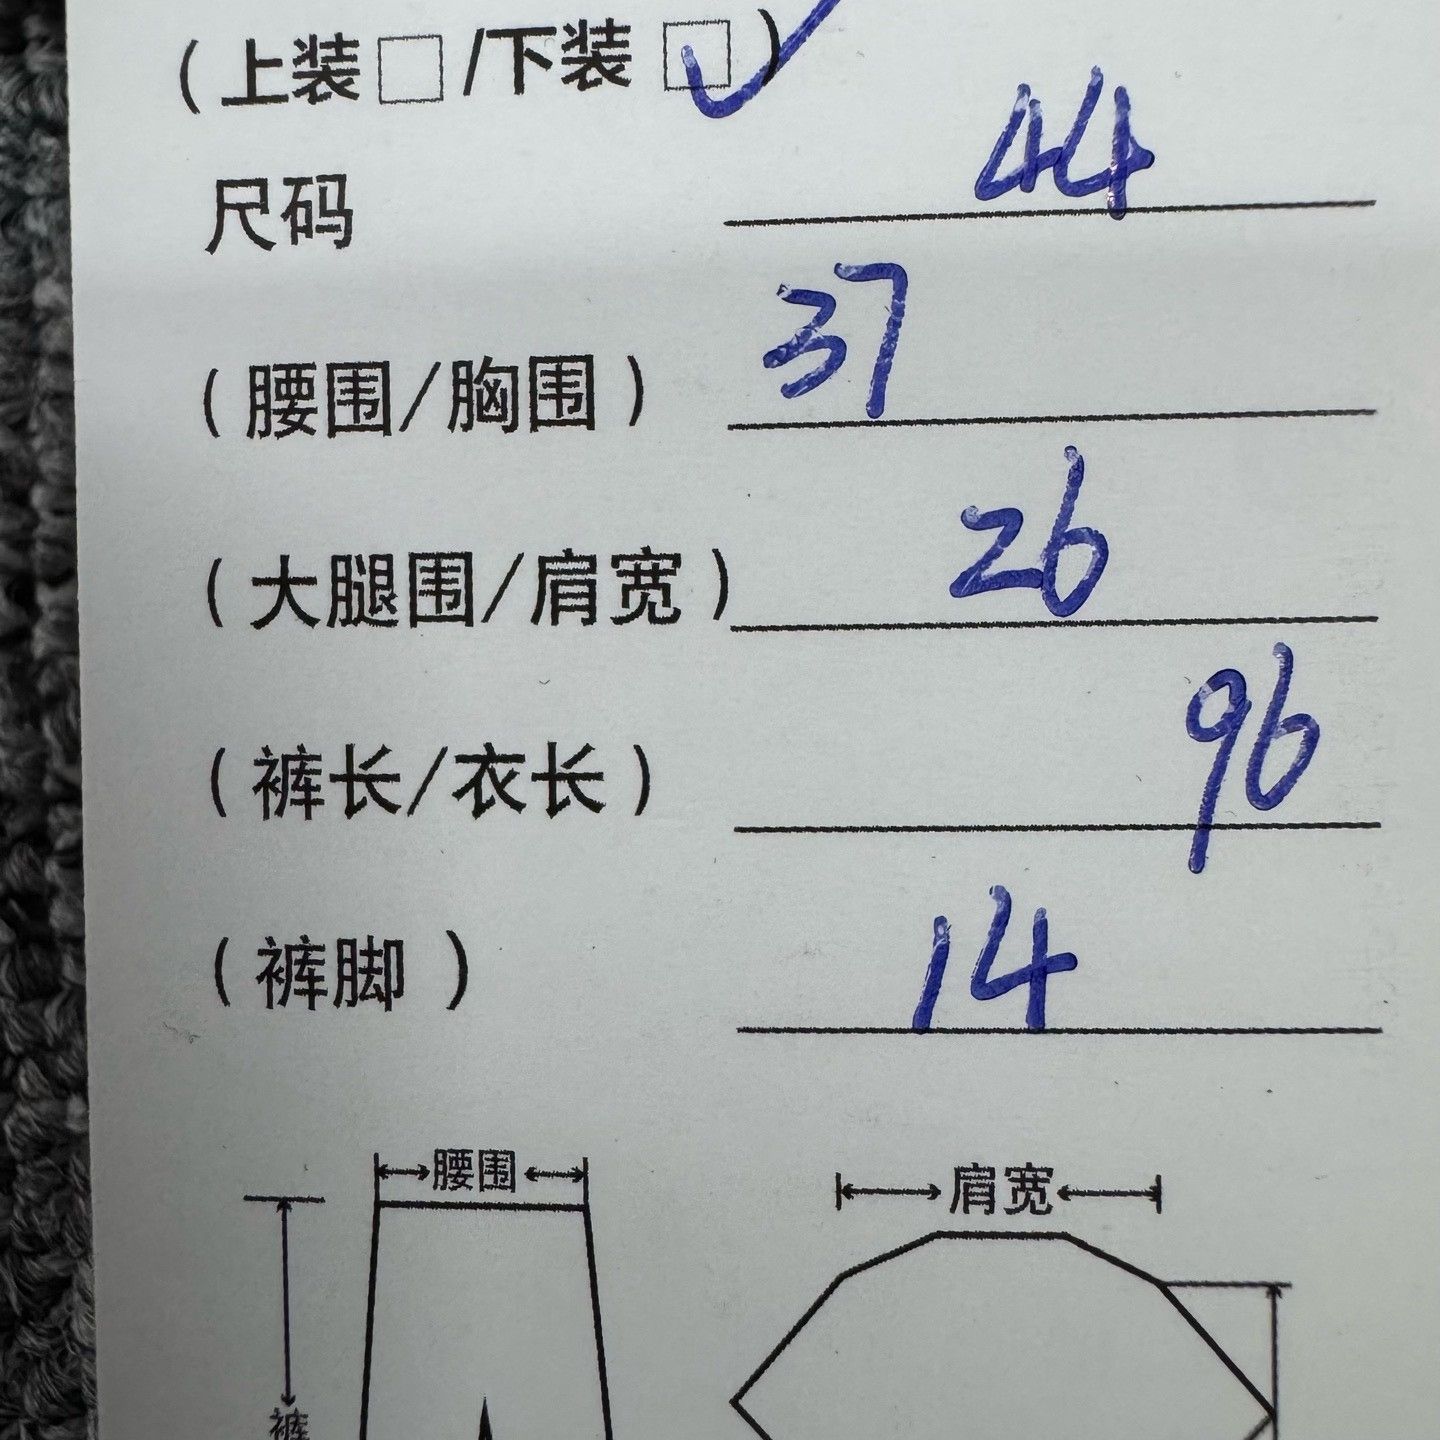 （上装□/下装☑）
尺码 44
（腰围/胸围） 37
（大腿围/肩宽） 26
（裤长/衣长） 96
（裤脚 ） 14
腰围
肩宽
裤